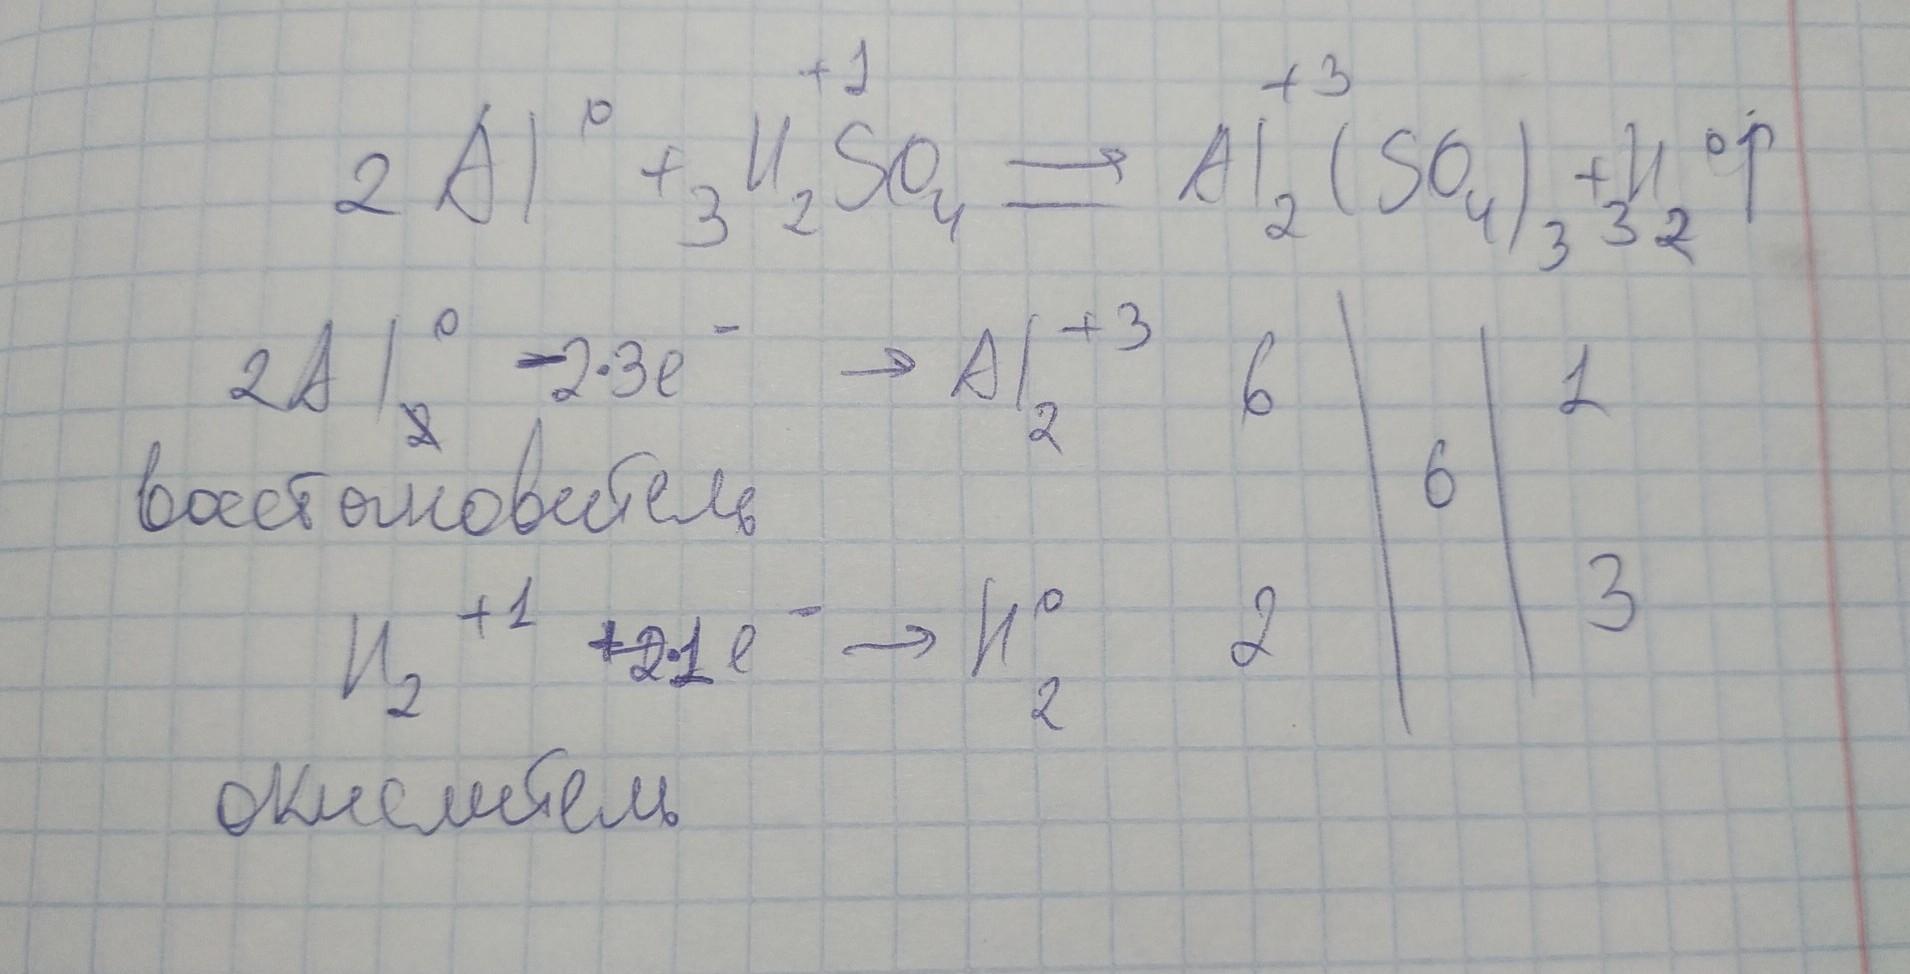 2Al⁰ + 3H₂⁺¹SO₄ ⇒ Al₂⁺³(SO₄)₃ + 3H₂⁰↑
2Al⁰ -2·3e⁻ → Al₂⁺³ 6 | | 1
восстановитель 6
H₂⁺¹ +2·1e⁻ → H₂⁰ 2 | | 3
окислитель